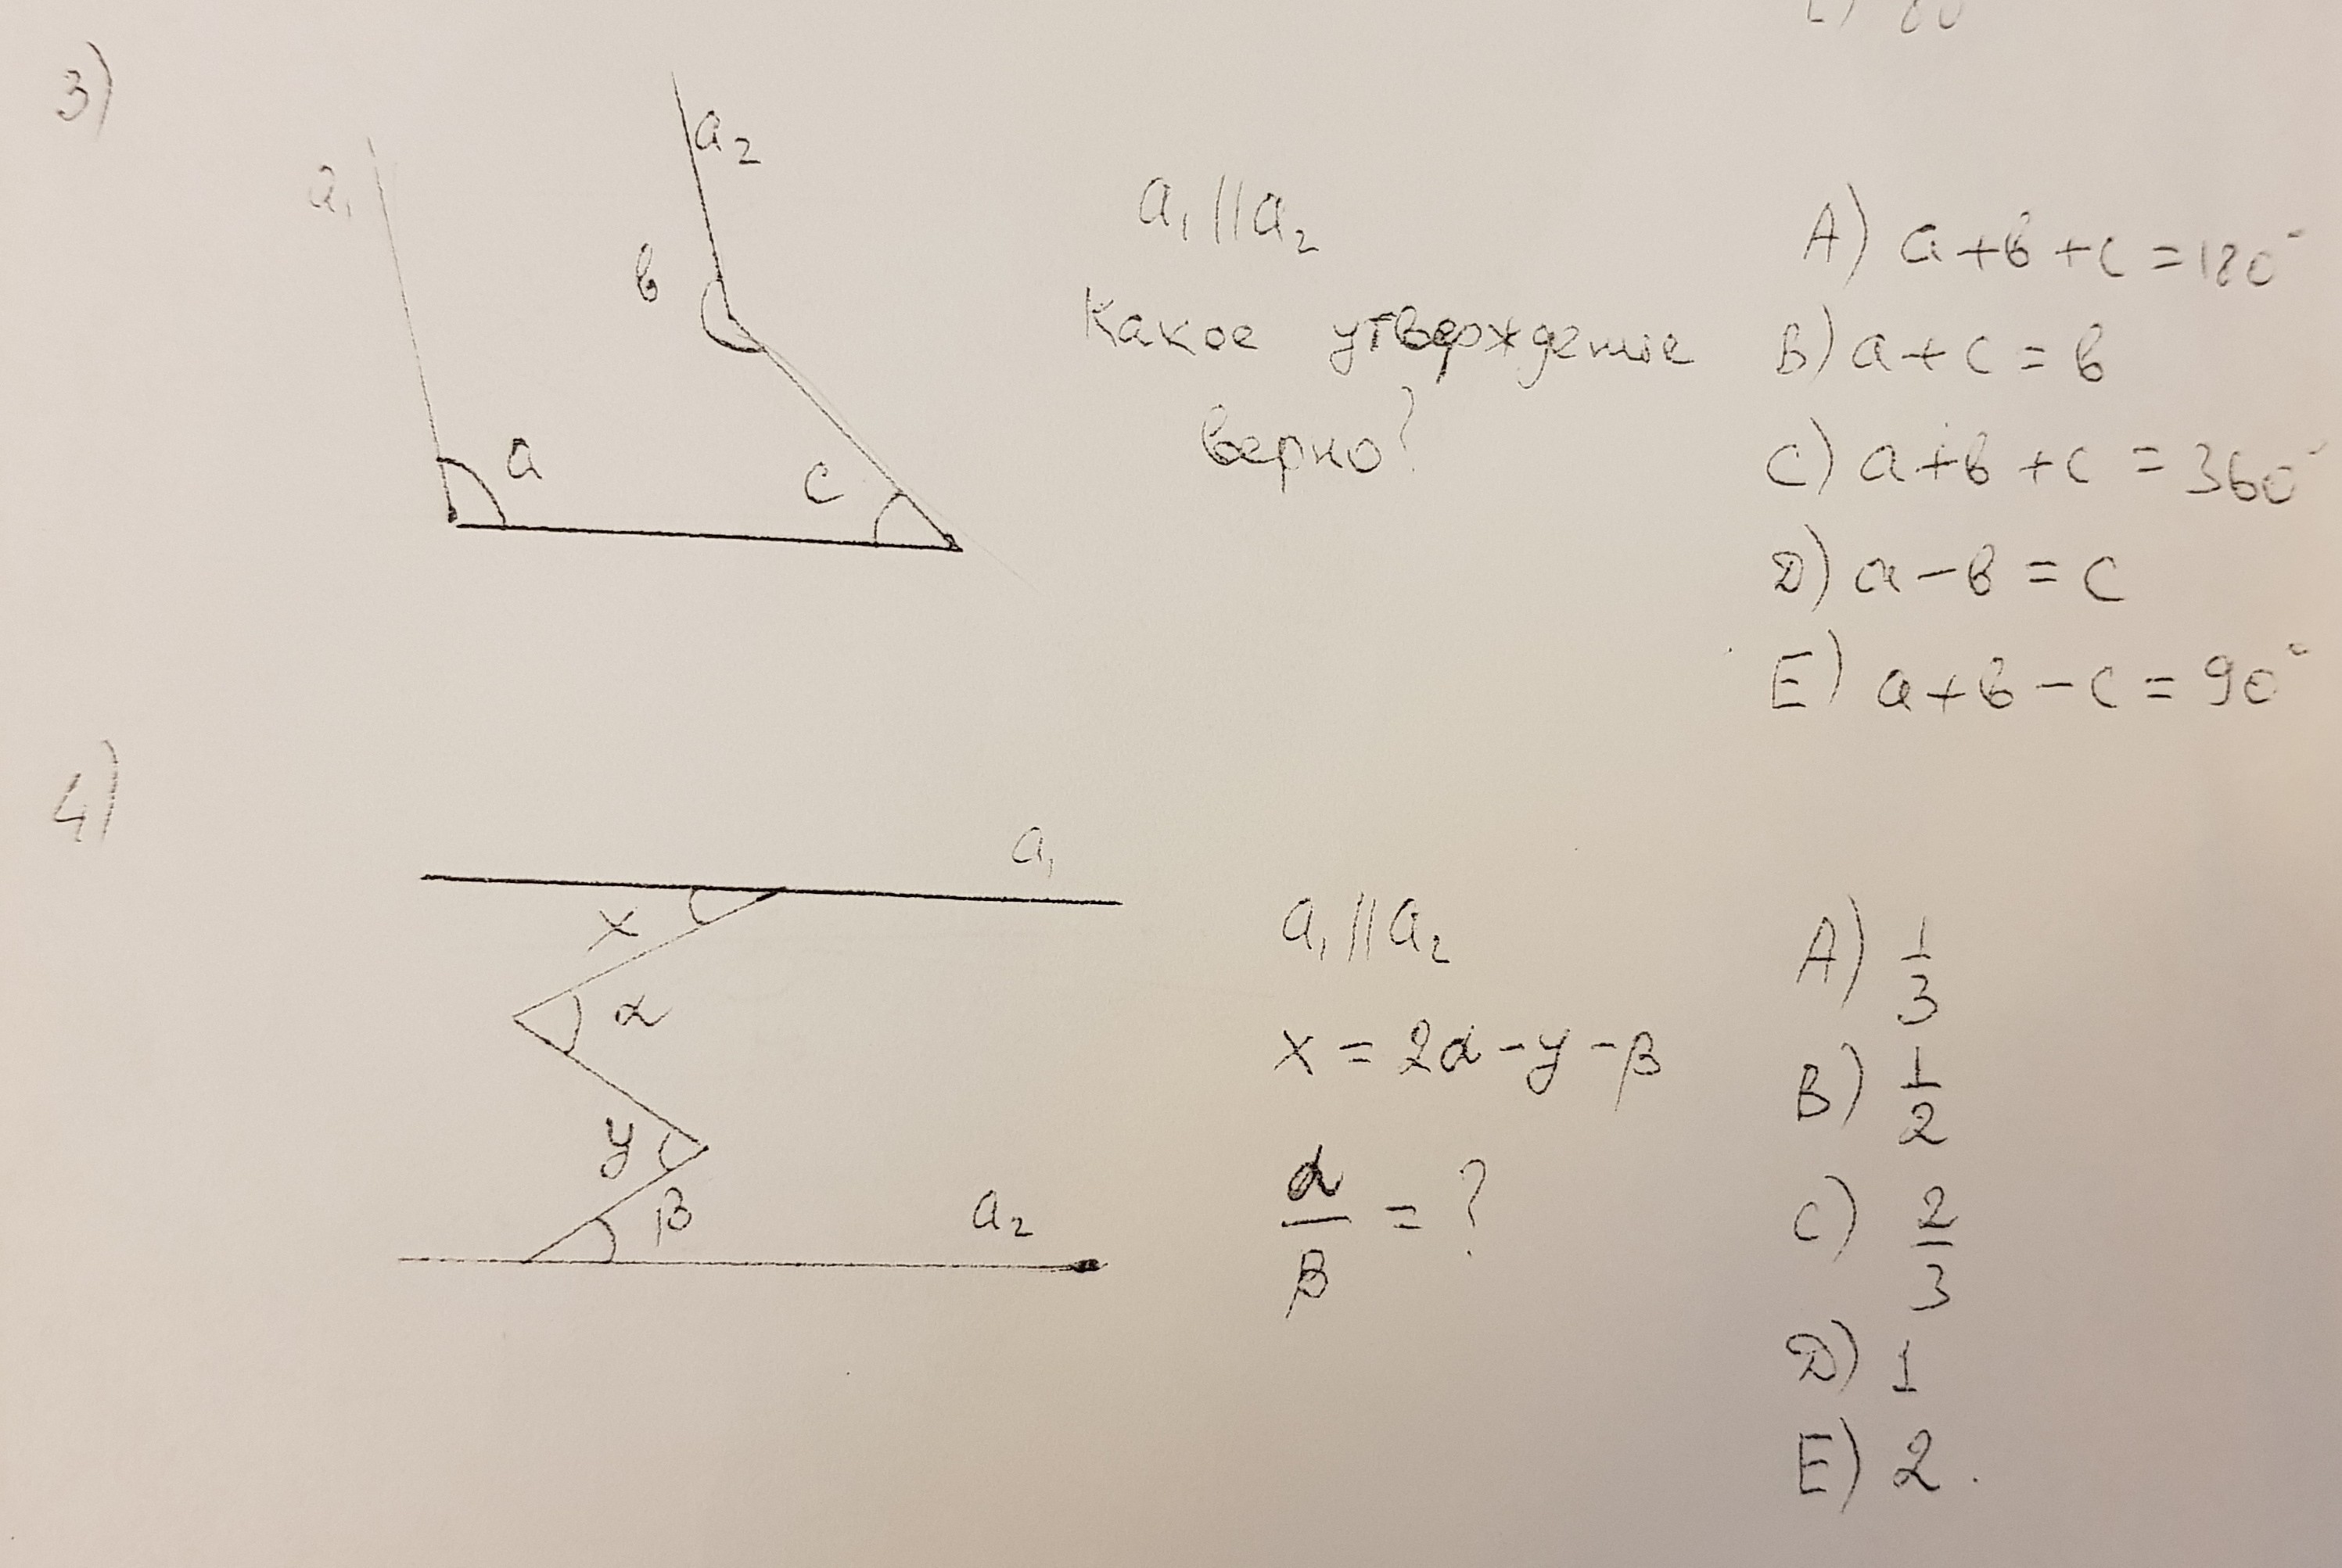 3)
a₁
a₂
в
a
c
a₁ || a₂
Какое утверждение
верно?
A) a + в + c = 180°
B) a + c = в
C) a + в + c = 360°
D) a − в = c
E) a + в − c = 90°
4)
a₁
x
α
y
β
a₂
a₁ || a₂
x = 2α − y − β
α/β = ?
A) 1/3
B) 1/2
C) 2/3
D) 1
E) 2.